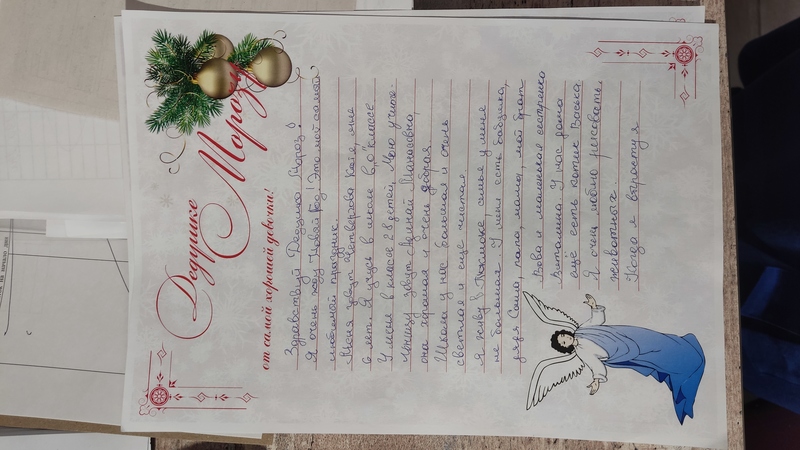 Дедушке
Морозу
от самой хорошей девочки!
Здравствуй Дедушка Мороз!
Я очень жду Новый Год! Это мой самый
любимый праздник.
Меня зовут Четвергова Катя, мне
6 лет. Я учусь в школе в "0" классе
У меня в классе 28 детей. Мою учите
льницу зовут
она хорошая и очень добрая
Школа у нас большая и очень
светлая и ещё чистая
Я живу в семье у меня
не большая. У меня есть бабушка,
дядя Саша, папа, мама, мой брат
Вова и маленькая сестрёнка
Виталина У нас дома
ещё есть котик Васька
Я очень люблю рисовать
животных.
Когда я вырасту я